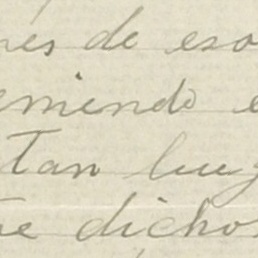 nes de eso
emiendo e
tan luz
te dichos